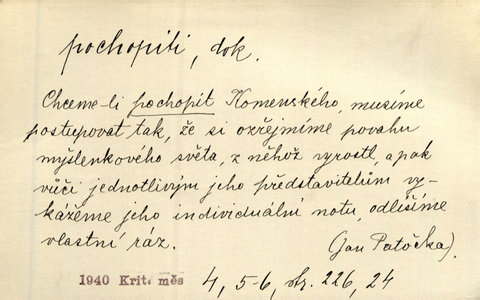 pochopiti, dok.
Chceme-li pochopit Komenského, musíme
postupovat tak, že si ozřejmíme povahu
myšlenkového světa, z něhož vyrostl, a pak
vůči jednotlivým jeho představitelům vy-
kážeme jeho individuální notu, odlišíme
vlastní ráz. (Jan Patočka).
1940 Krit. měs 4, 5-6, str. 226, 24